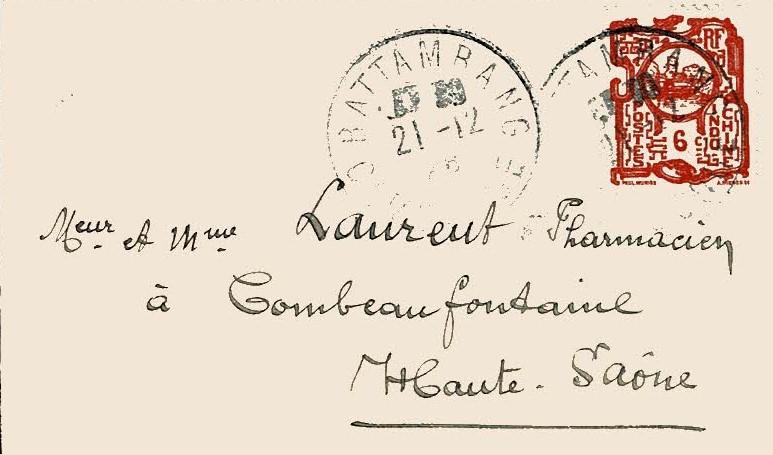 BATTAMBANG
21 -12
RF
POSTES
INDO
CHINE
6
Meur et Mme Laurent Pharmacien
à Combeaufontaine
Haute-Saône